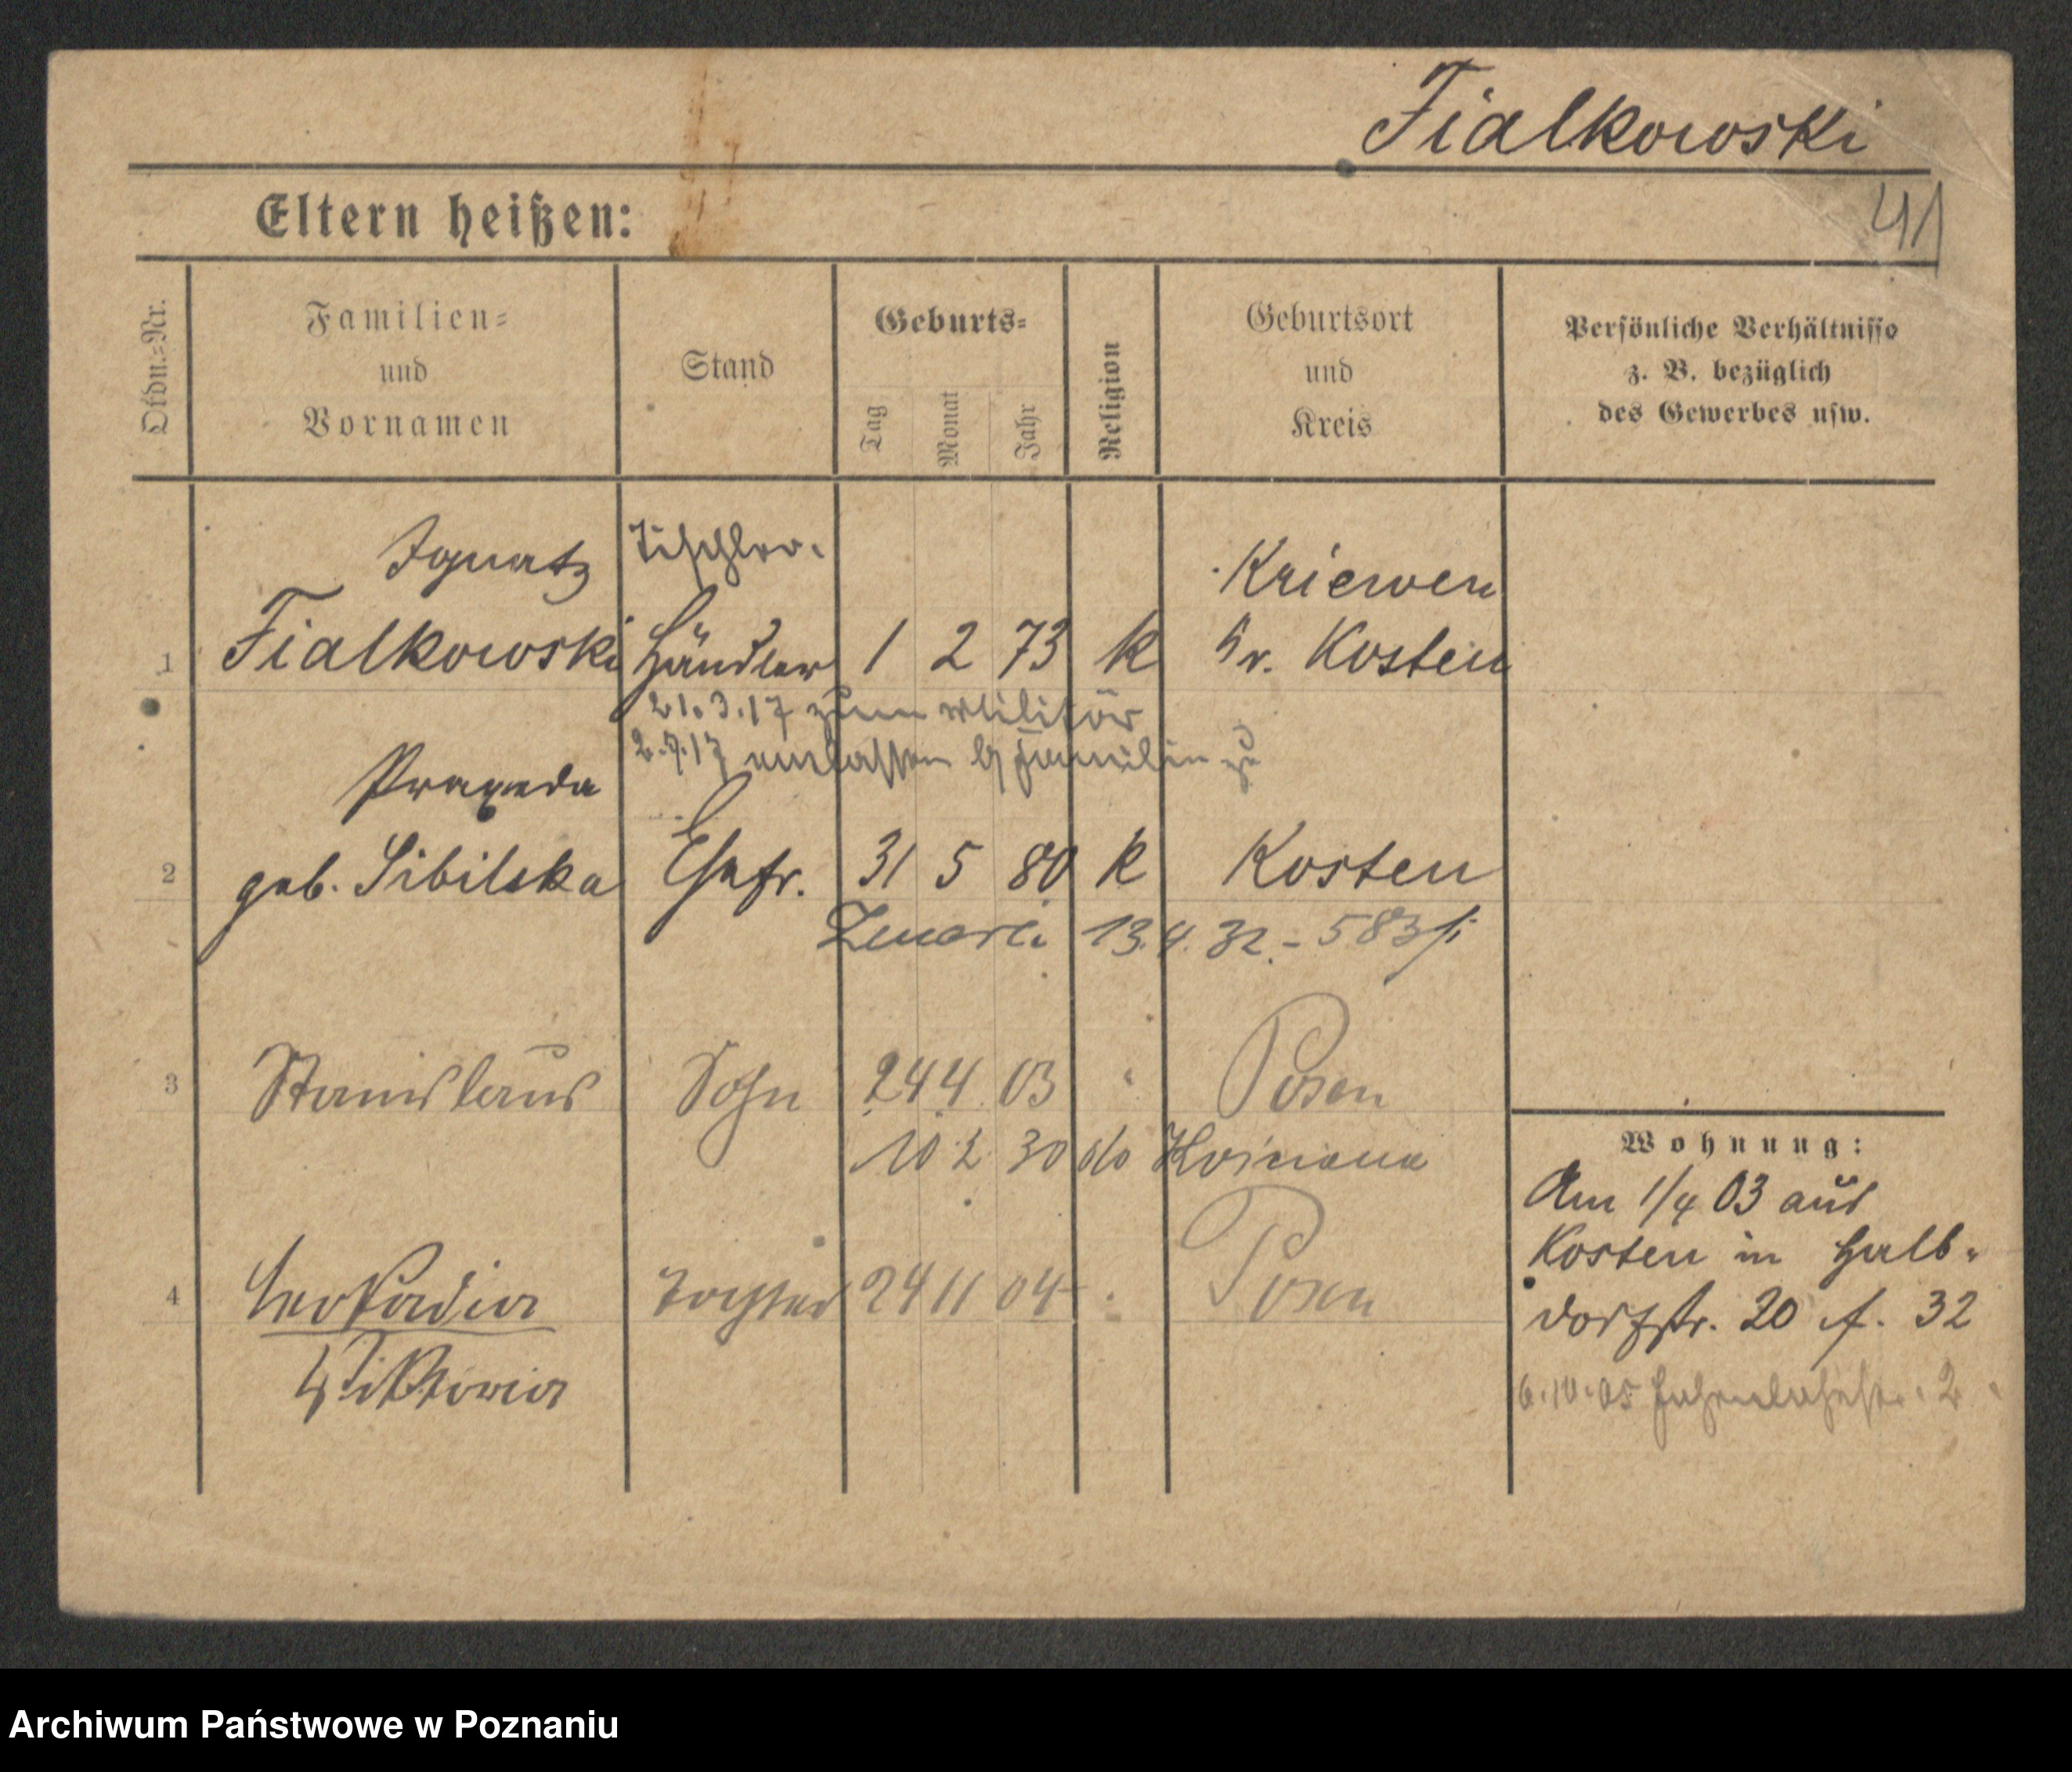 Fialkowski
41
Eltern heißen:
Ofdn.=Nr.
Familien=
und
Vornamen
Stand
Geburts=
Tag
Monat
Jahr
Religion
Geburtsort
und
Kreis
Persönliche Verhältnisse
z. B. bezüglich
des Gewerbes usw.
Ignatz Tischler. Kriewen
1 Fialkowski Händler 1 2 73 k Kr. Kosten
21.3.17 zum Militär
2.7.17 entlassen Familie
Praxeda
2 geb. Sibilska Ehefr. 31 5 80 k Kosten
13.4.32.- 583
3 Stanislaus Sohn 24 4 03 " Posen
10 2 30 do
4 Leokadia Tochter 24 11 04 Posen
Wiktoria
Wohnung:
Am 1/4 03 aus
Kosten in Halb-
dorfstr. 20 f. 32
6.10.05 2
Archiwum Państwowe w Poznaniu